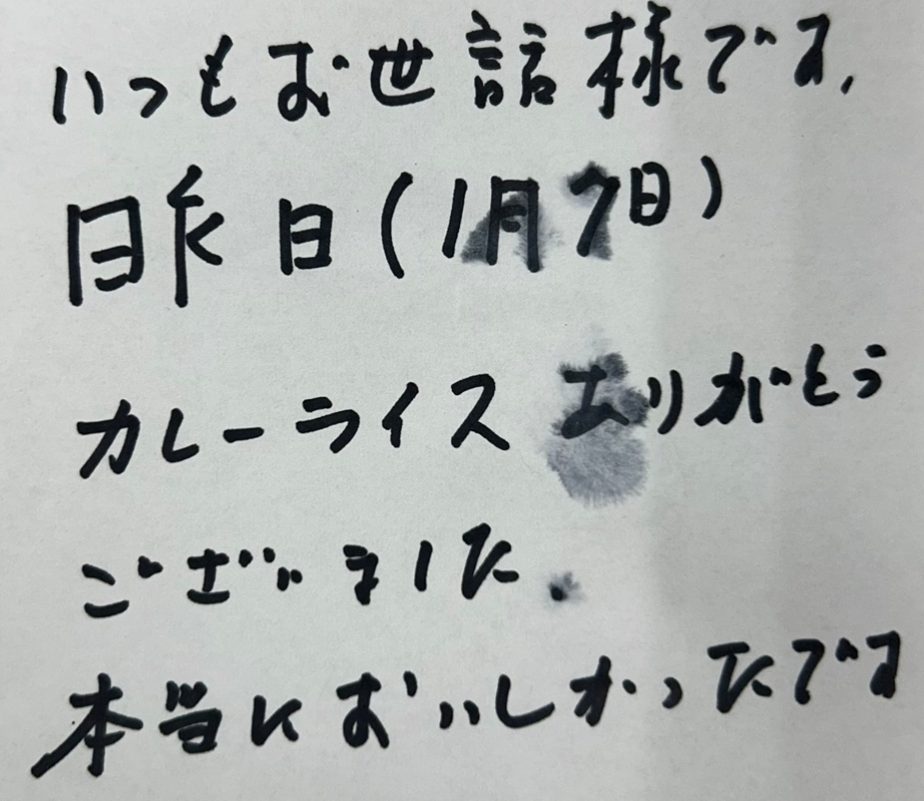 いつもお世話様です、
昨日(1月7日)
カレーライスありがとう
ございました.
本当においしかったです